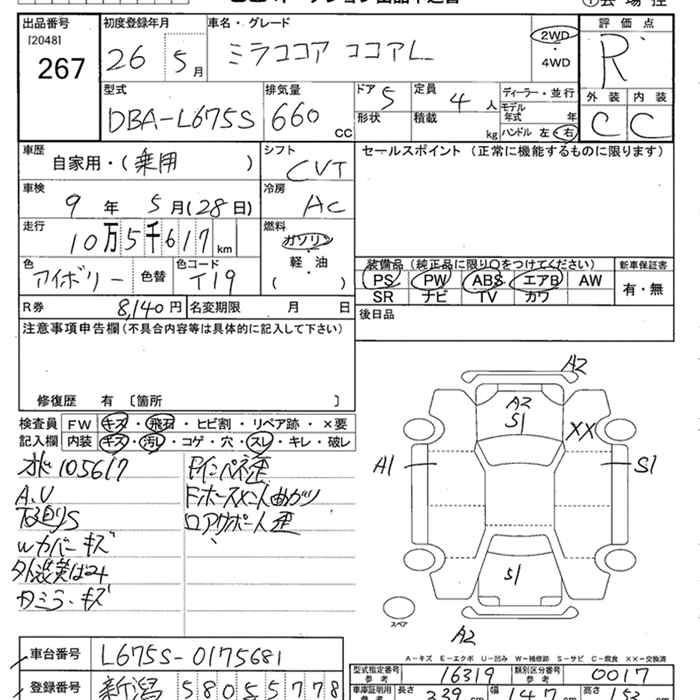 出品番号
[2048]
267
初度登録年月
26 5 月
車名・グレード
ミラココア ココアL
2WD
・
4WD
評価点
R
外装 内装
C C
型式
DBA-L675S
排気量
660 cc
ドア
5
定員
4 人
形状
積載
kg
ディーラー・並行
モデル年式 年
ハンドル 左・右
車歴
自家用・(乗用 )
シフト
CVT
セールスポイント (正常に機能するものに限ります)
車検
9 年 5 月(28日)
冷房
AC
走行
10万5千617 km
燃料
ガソリン
軽・油
( ・ )
色
アイボリー
色替
色コード
T19
装備品(純正品に限り○をつけてください)
PS PW ABS エアB AW
SR ナビ TV カワ
新車保証書
有・無
R券
8,140円
名変期限 月 日
後日品
注意事項申告欄(不具合内容等は具体的に記入して下さい)
修復歴 有 〔箇所 〕
検査員記入欄
FW キズ・飛石・ヒビ割・リペア跡・×要
内装 キズ・汚レ・コゲ・穴・スレ・キレ・破レ
105617
A.U
下廻りS
Wカバーキズ
Fインパネ歪
ロアサポート歪
A2
A2
S1
XX
A1
S1
S1
A2
スペア
A-キズ E-エクボ U-凹み W-補修跡 S-サビ C-腐食 XX-交換済
車台番号
L675S-0175681
登録番号
新潟 580 55778
型式指定番号
参考
16319
類別区分番号
参考
0017
車庫証明用
参考
長さ
339 cm
幅
147 cm
高さ
153 cm